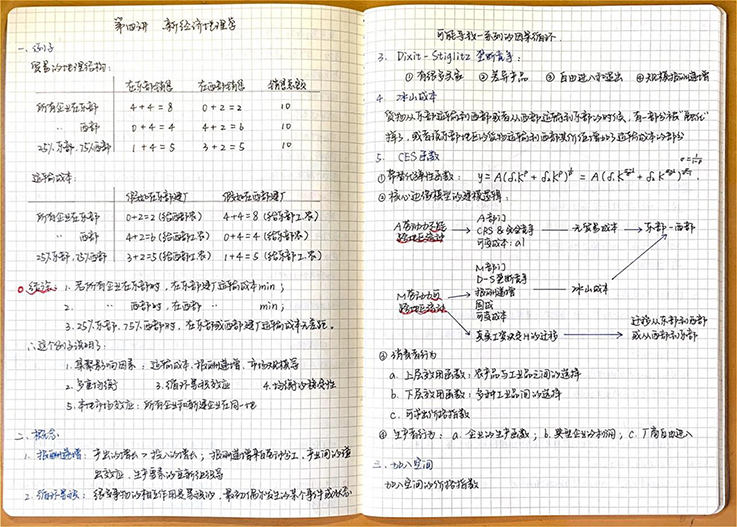 第四讲 新经济地理学
一、例子
贸易的地理结构：
在东部销售 在西部销售 销售总数
所有企业在东部 4+4=8 0+2=2 10
〃 西部 0+4=4 4+2=6 10
25%东部,75%西部 1+4=5 3+2=5 10
运输成本：
假如在东部建厂 假如在西部建厂
所有企业在东部 0+2=2(给西部农) 4+4=8(给东部工农)
〃 西部 4+2=6(给西部工农) 0+4=4(给东部农)
25%东部,75%西部 3+2=5(给西部工农) 1+4=5(给东部工农)
结论：1. 若所有企业在东部时，在东部建厂运输成本min；
2. 〃 西部时，在西部 〃 min；
3. 25%东部，75%西部时，在东部或西部建厂运输成本无差距。
∴这个例子说明了：
1. 集聚影响因素：运输成本、报酬递增、市场规模等
2. 多重均衡 3. 循环累积效应 4. 均衡的稳定性
5. 本地市场效应：所有企业和新建企业在同一地
二、概念
1. 报酬递增：产出的增长>投入的增长；报酬递增来自于分工、产业间的溢
出效应、生产要素的重新组织等
2. 循环累积：经济事物的相互作用是累积的，最初偶尔发生的某个事件或状态
可能导致一系列的因果循环.
3. Dixit-Stiglitz 垄断竞争：
①有许多买家 ②差异产品 ③自由进入和退出 ④规模报酬递增
4. 冰山成本
货物从东部运输到西部或者从西部运输到东部的时候，有一部分被“融化”
掉了，或者说东部地区的货物运输到西部其价值增加了运输成本的部分
5. CES函数 σ=1/(1-ρ)
①替代弹性函数：
②核心边缘模型的建模逻辑：
A部门
CRS & 完全竞争
可变成本：a1
无贸易成本 东部-西部
M部门
D-S垄断竞争
报酬递增
固成
可变成本
冰山成本
迁移从东部到西部
或从西部到东部
③消费者行为
a. 上层效用函数：农产品与工业品之间的选择
b. 下层效用函数：多种工业品间的选择
c. 可导出价格指数
④生产者行为：a. 企业的生产函数；b. 典型企业的利润；c. 厂商自由进入
三、加入空间
加入空间的价格指数